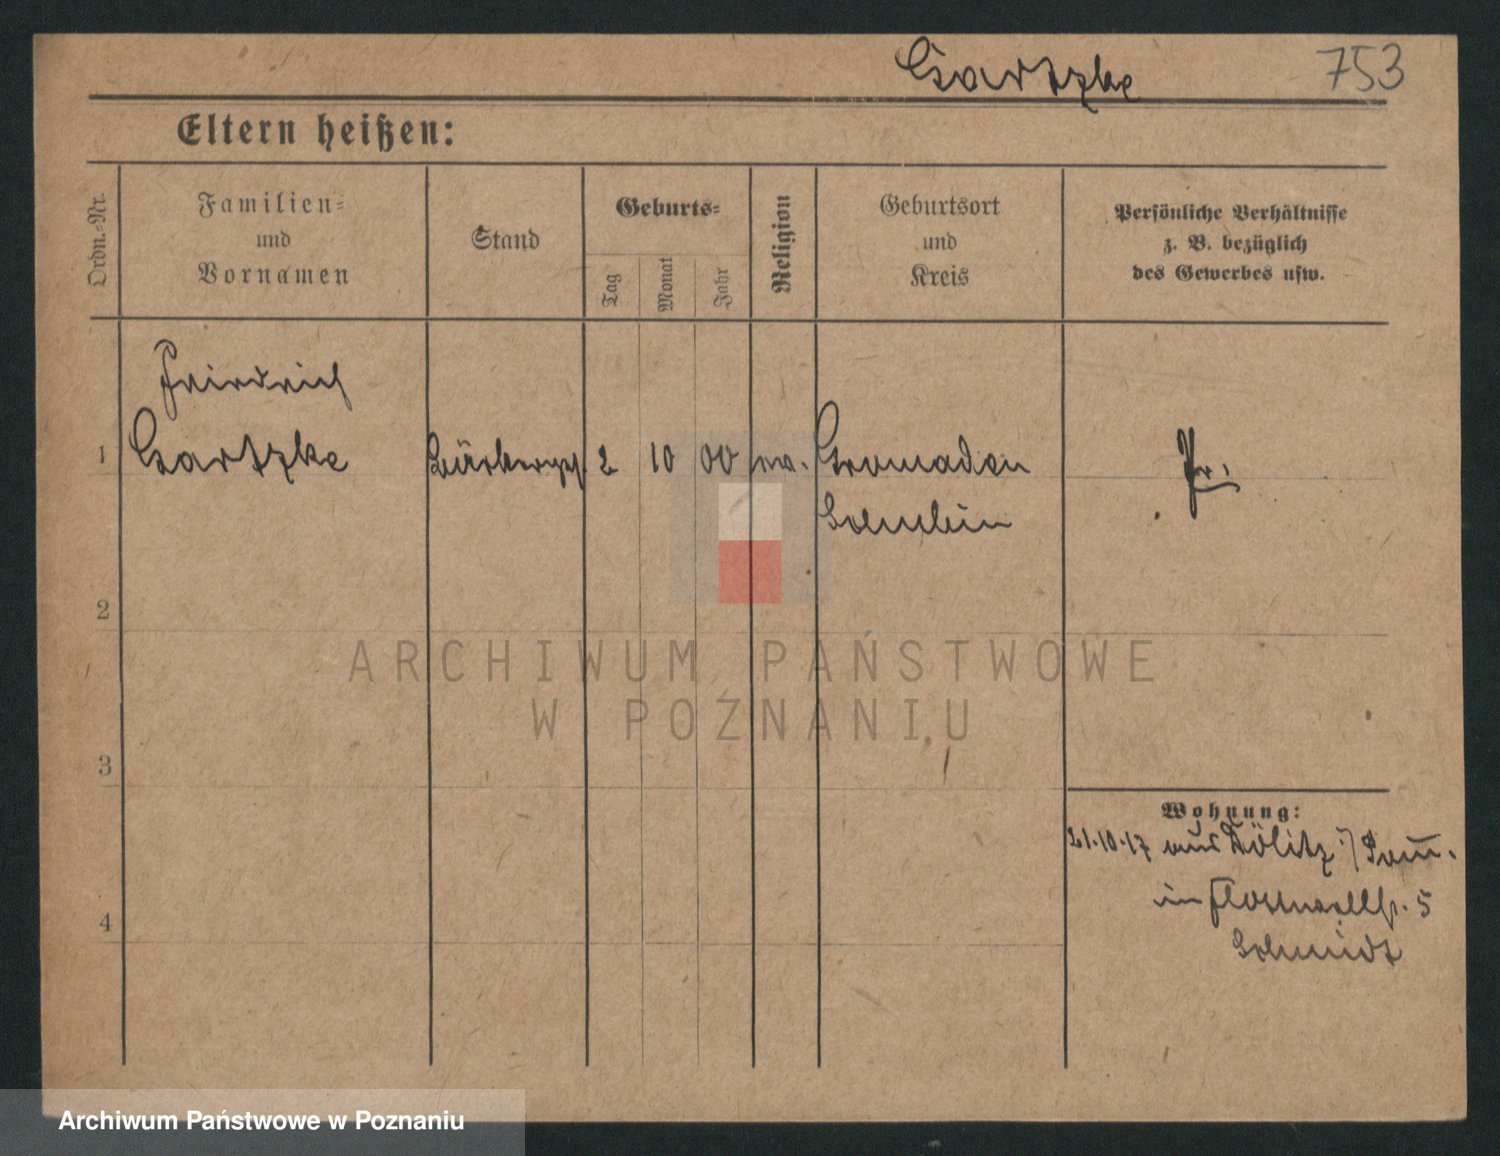 Gartzke 753
Eltern heißen:
Ordn.-Nr.
Familien-
und
Vornamen
Stand
Geburts-
Tag
Monat
Jahr
Religion
Geburtsort
und
Kreis
Persönliche Verhältnisse
z. B. bezüglich
des Gewerbes usw.
Friedrich
1 Gartzke 2 10 00 Gromaden Pr.
Schubin
2
3
4
Wohnung:
21.10.17 aus Dölitz i/Pom.
in 5
Schmidt
ARCHIWUM PAŃSTWOWE
W POZNANIU
Archiwum Państwowe w Poznaniu